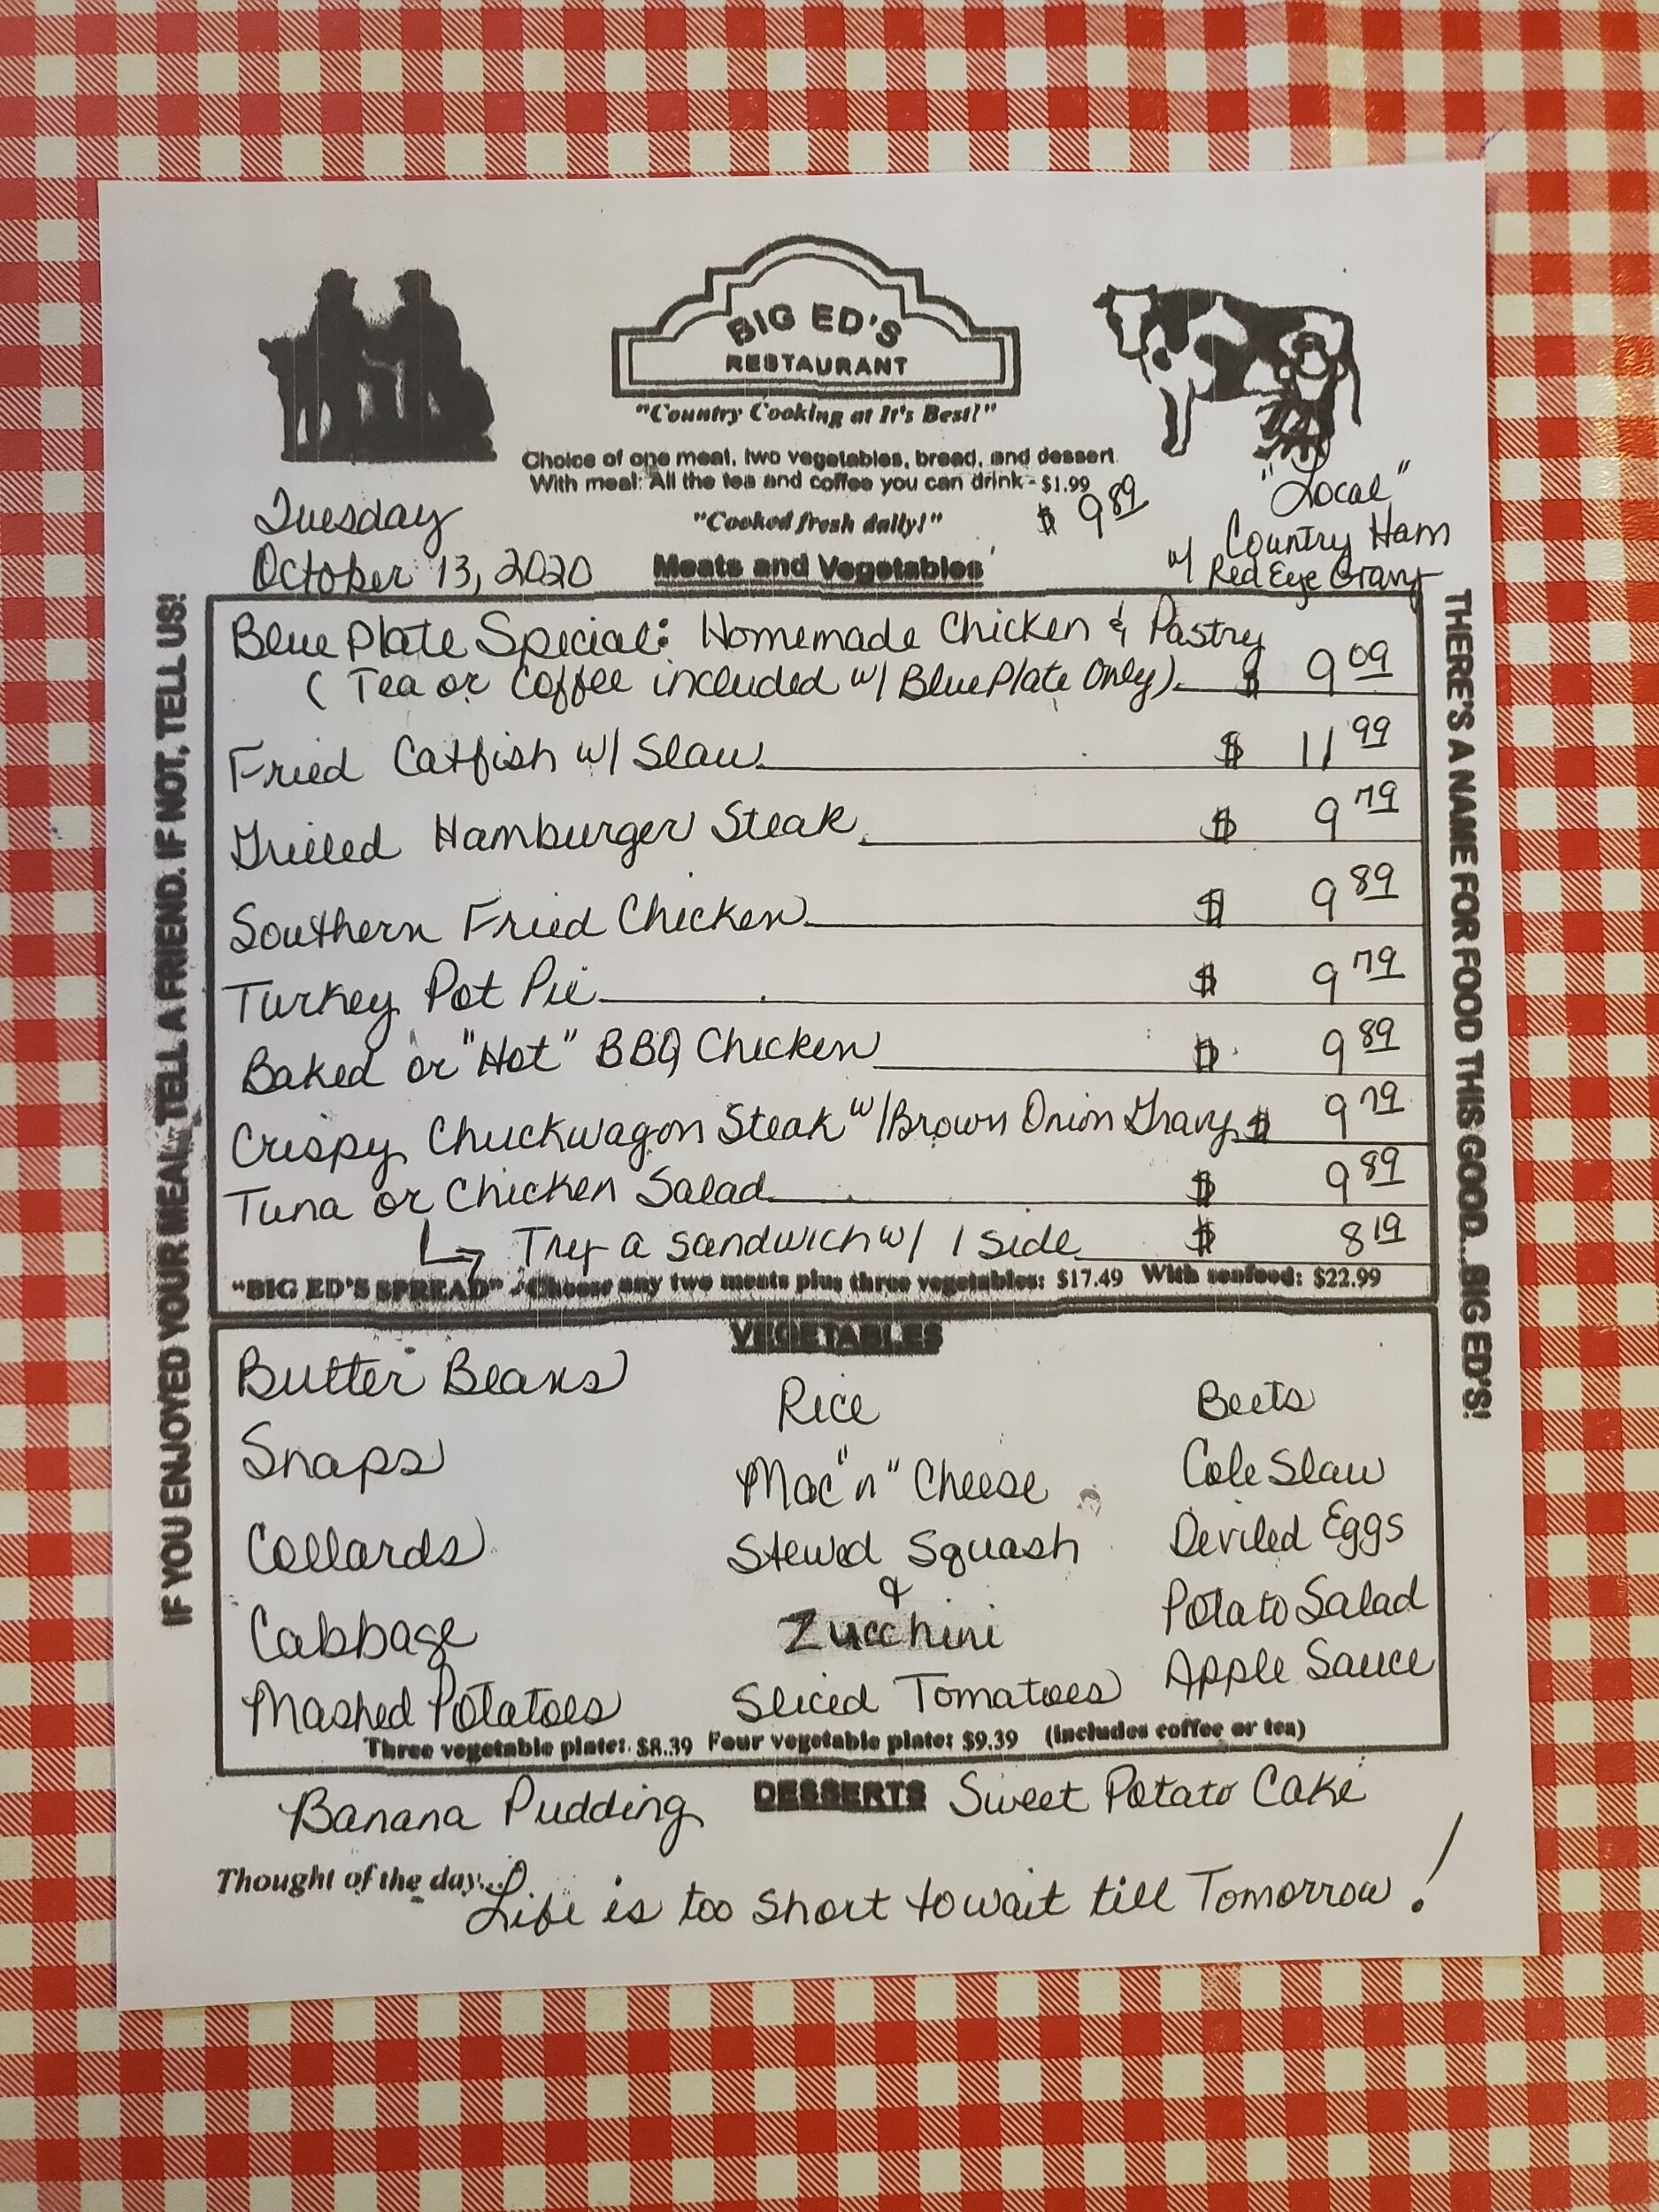 BIG ED'S
RESTAURANT
"Country Cooking at It's Best!"
Choice of one meat, two vegetables, bread, and dessert
With meal: All the tea and coffee you can drink - $1.99
"Cooked fresh daily!"
$ 9 89
"Local"
Country Ham
w/ Red Eye Gravy
Tuesday
October 13, 2020
Meats and Vegetables
Blue Plate Special: Homemade Chicken & Pastry
(Tea or Coffee included w/ Blue Plate Only) $ 9 09
Fried Catfish w/ Slaw $ 11 99
Grilled Hamburger Steak $ 9 79
Southern Fried Chicken $ 9 89
Turkey Pot Pie $ 9 79
Baked or "Hot" BBQ Chicken $ 9 89
Crispy Chuckwagon Steak w/ Brown Onion Gravy $ 9 79
Tuna or Chicken Salad $ 9 89
Try a sandwich w/ 1 side $ 8 19
"BIG ED'S SPREAD" - Choose any two meats plus three vegetables: $17.49 With seafood: $22.99
VEGETABLES
Butter Beans
Snaps
Collards
Cabbage
Mashed Potatoes
Rice
Mac "n" Cheese
Stewed Squash
&
Zucchini
Sliced Tomatoes
Beets
Cole Slaw
Deviled Eggs
Potato Salad
Apple Sauce
Three vegetable plate: $8.39 Four vegetable plate: $9.39 (includes coffee or tea)
DESSERTS
Banana Pudding
Sweet Potato Cake
Thought of the day... Life is too short to wait till Tomorrow!
IF YOU ENJOYED YOUR MEAL, TELL A FRIEND. IF NOT, TELL US!
THERE'S A NAME FOR FOOD THIS GOOD...BIG ED'S!